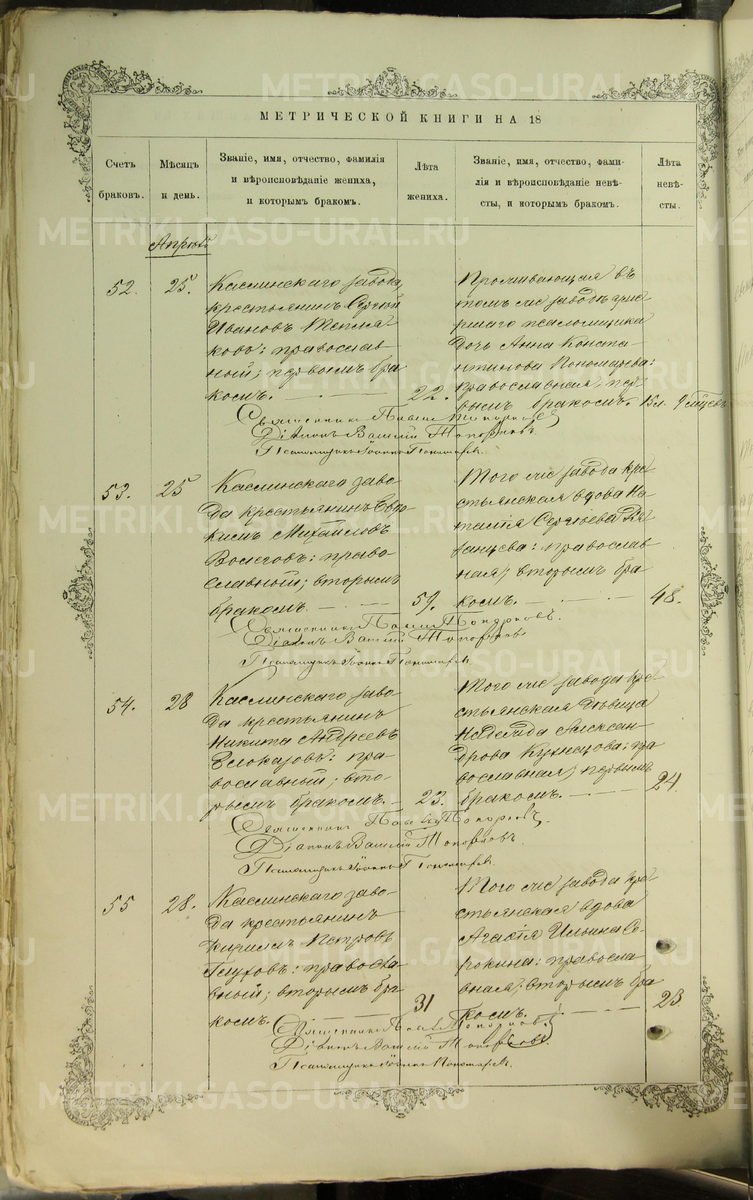 МЕТРИЧЕСКОЙ КНИГИ НА 18
Счетъ
браковъ.
Мѣсяцъ
и день.
Званіе, имя, отчество, фамилія
и вѣроисповѣданіе жениха,
и которымъ бракомъ.
Лѣта
жениха.
Званіе, имя, отчество, фами-
лія и вѣроисповѣданіе невѣ-
сты, и которымъ бракомъ.
Лѣта
невѣ-
сты.
Апрель
52.
25.
Каслинскаго завода,
крестьянинъ Сергій
Ивановъ Тепля
ковъ: православ
ный; первымъ бра
комъ.
22.
Проживающая въ
томъ же заводѣ
псаломщика
дочь Анна Конста
нтинова Пономарева:
православная, пер
вымъ бракомъ.
Священникъ Павелъ Топорковъ
Діаконъ Василій Топорковъ.
Псаломщикъ Іоаннъ Пономаревъ.
53.
25
Каслинскаго заво
да крестьянинъ Евд
кимъ Михайловъ
Волеговъ: право
славный; вторымъ
бракомъ.
59.
Того же завода кре
стьянская вдова На
талія Сергѣева
православ
ная, вторымъ бра
комъ.
48.
Священникъ Павелъ Топорковъ.
Діаконъ Василій Топорковъ
Псаломщикъ Іоаннъ Пономаревъ.
54.
28
Каслинскаго заво
да крестьянинъ
Никита Андреевъ
Блоказовъ: пра
вославный; вто
рымъ бракомъ.
23.
Того же завода кре
стьянская дѣвица
Надежда Алексан
дрова Кузнецова: пра
вославная, первымъ
бракомъ.
24.
Священникъ Павелъ Топорковъ.
Діаконъ Василій Топорковъ.
Псаломщикъ Іоаннъ Пономаревъ.
55
28.
Каслинскаго заво-
да крестьянинъ
Кириллъ Петровъ
Глуховъ: правосла
вный; вторымъ бра
комъ.
31
Того же завода кре
стьянская вдова
Агафія Ильина Со
рокина: правосла
вная, вторымъ бра
комъ.
23
Священникъ Павелъ Топорковъ
Діаконъ Василій Топорковъ.
Псаломщикъ Іоаннъ Пономаревъ.
METRIKI.GASO-URAL.RU